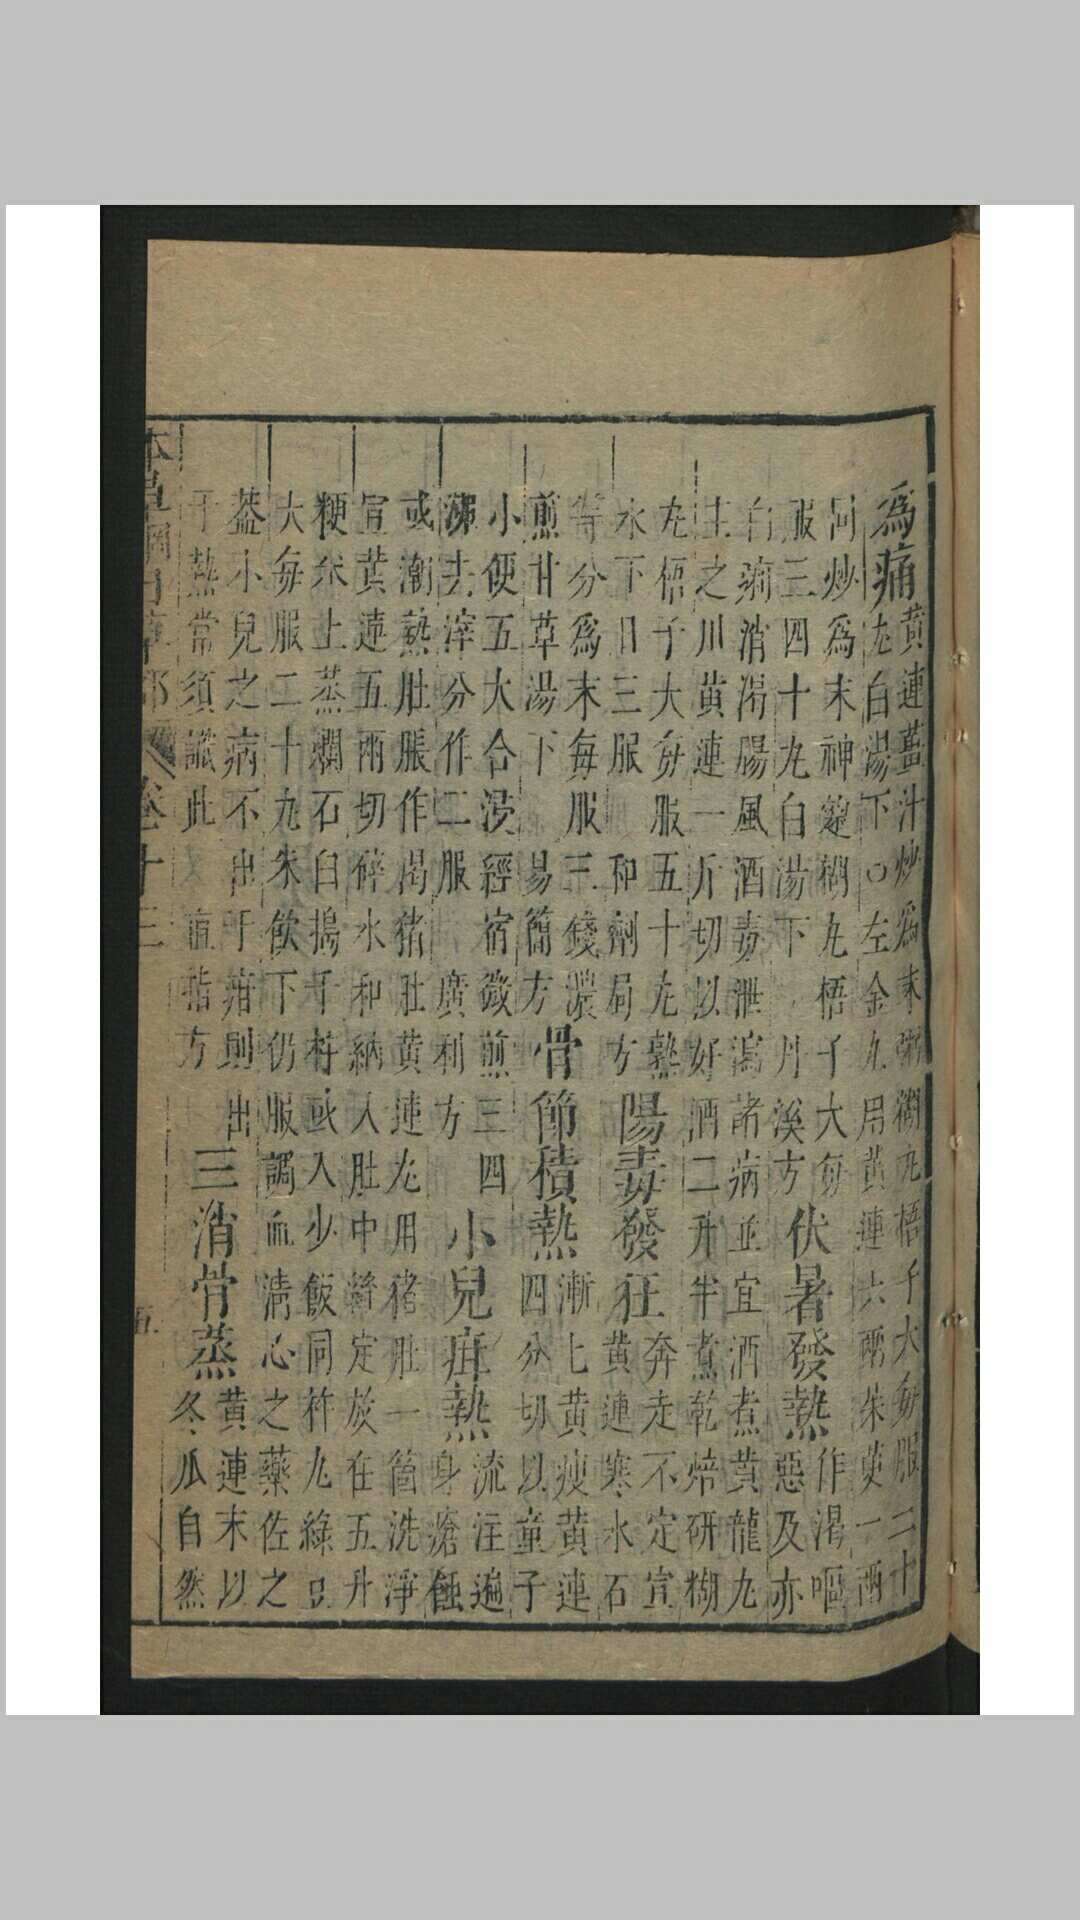 為痛黄連薑汁炒為末粥糊丸梧子大每服二十
丸白湯下○左金丸用黄連六兩茱萸一兩
同炒為末神麴糊丸梧子大每
服三四十丸白湯下 丹溪方 伏暑發熱 作渴嘔
惡及赤
白痢消渴腸風酒毒泄瀉諸病並宜酒煮黄龍丸
主之川黄連一斤切以好酒二升半煮乾焙研糊
丸梧子大每服五十丸熟
水下日三服 和劑局方 陽毒發狂 奔走不定宣
黄連寒水石
等分為末每服三錢濃
煎甘草湯下 易簡方 骨節積熱 漸〻黄瘦黄連
四分切以童子
小便五大合浸經宿微煎三四
沸去滓分作二服 廣利方 小兒疳熱 流注遍
身瘡蝕
或潮熱肚脹作渴猪肚黄連丸用猪肚一箇洗淨
宣黄連五兩切碎水和納入肚中縫定放在五升
粳米上蒸爛石臼搗千杵或入少飯同杵丸綠豆
大每服二十丸米飲下仍服調血清心之藥佐之
蓋小兒之病不出于疳則出
于熱常須識此 直指方 三消骨蒸 黄連末以
冬瓜自然
本草綱目草部 卷十三 五